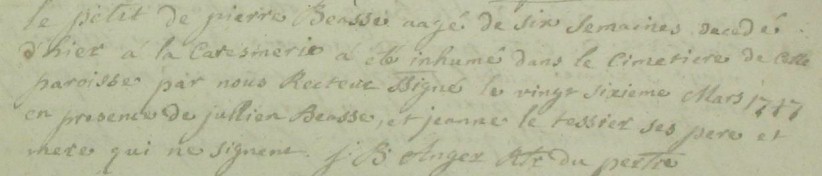 le petit de pierre Beasse aagé de six semaines decedé
d'hier a la Caresmerie a eté inhumé dans le Cimetiere de Cette
paroisse par nous Recteur Signé le vingt sixieme Mars 1747
en presence de jullien Beasse, et jeanne le tessier ses pere et
mere qui ne signent. j: B: Anger Rtr du pertre